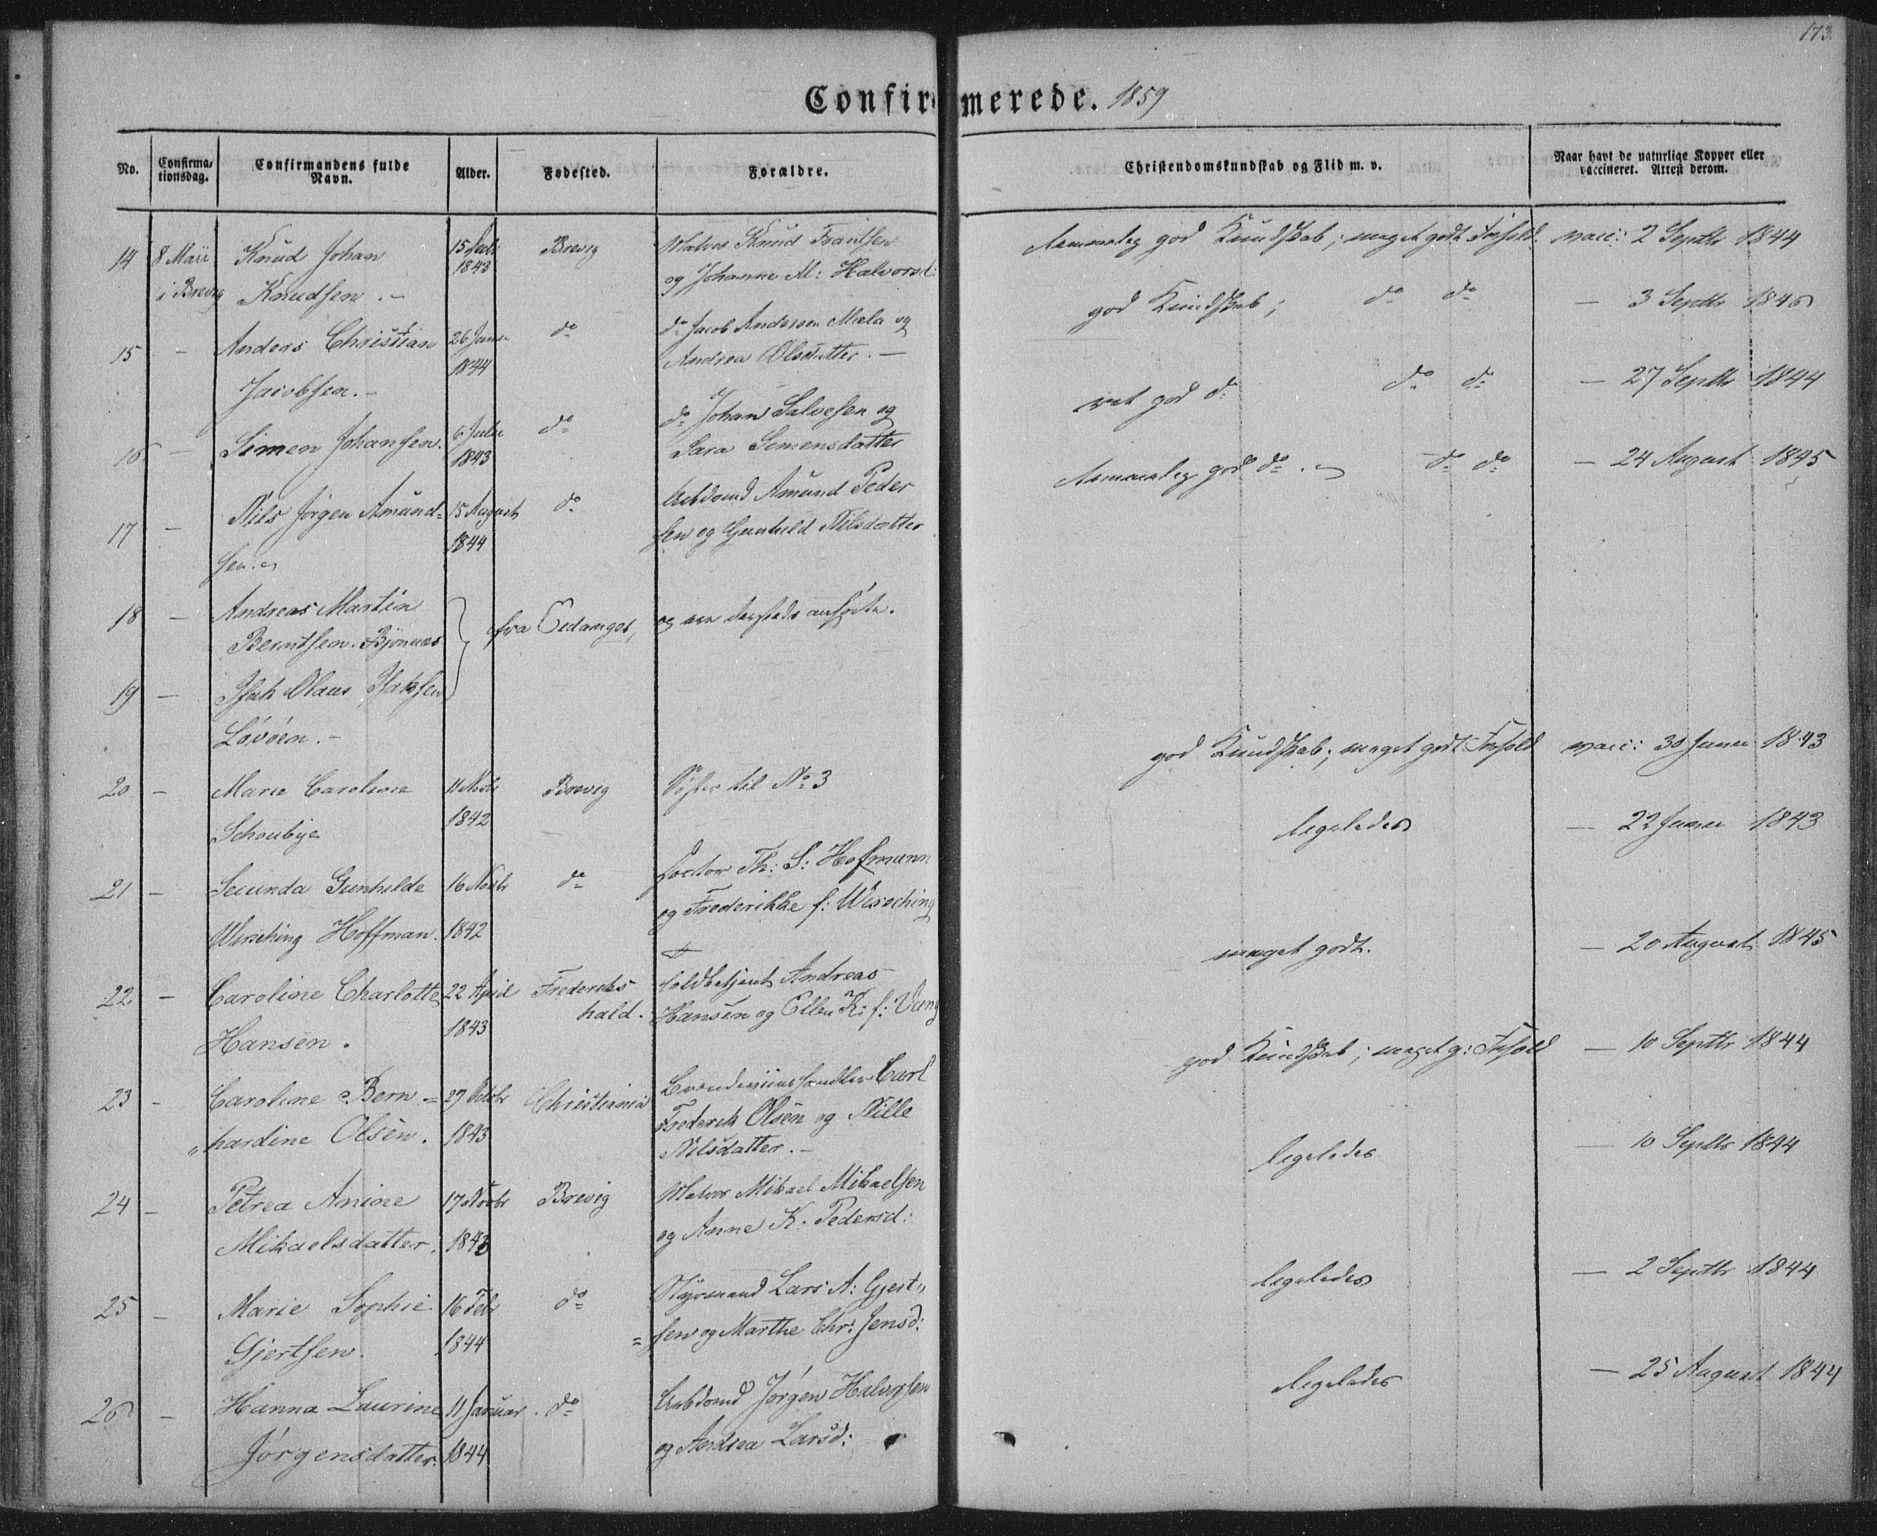 173.
Confirmerede. 1859
No.
Confirma-
tionsdag.
Confirmandens fulde
Navn.
Alder.
Fødested.
Forældre.
Christendomskundskab og Flid m. v.
Naar havt de naturlige Kopper eller
vaccineret. Attest derom.
14 8 Maii Knud Johan 15 Juli Brevig Matros Knud Frantsen temmelig god Kundskab; meget godt Forhold. vacc: 2 Septbr 1844
i Brevig Knudsen. - 1843 og Johanne M: Halvorsd:
15 - Anders Christian 26 Janr do do Jacob Andersen Mæla og god Kundskab; do do - 3 Septbr 1846
Jacobsen. - 1844 Andrea Olsdatter. -
16 - Simen Johansen. 6 Juli do do Johan Salvesen og ret god do do do - 27 Septbr 1844
1843 Sara Simensdatter
17 - Nils Jørgen Amund- 15 August do Arbdsmd Amund Peder temmelig god do. do do - 24 August 1845
sen. 1844 sen og Gunhild Nilsdatter
18 - Andreas Martin
Berntsen. Bjønnæs fra Eidanger, og ere dersteds anførte.
19 - Isak Olaus Isaksen
Løvøen. -
20 - Marie Caroline 11 Novbr Brevig Søster til No 3 god Kundskab; meget godt Forhold vacc: 30 Junii 1843
Schoubye 1842
21 - Secunda Gunhilde 16 Novbr do Doctor Th: S: Hofmann ligeledes - 22 Junii 1843
Wirsching Hoffman. 1842 og Frederikke f: Wirsching
22 - Caroline Charlotte 22 April Frederiks Toldbetjent Andreas meget godt. - 20 August 1845
Hansen. 1843 hald. Hansen og Ellen K: f: Vang
23 - Caroline Bern- 29 Octobr Christiania Brændeviinshandler Carl god Kundskab; meget g: Forhold - 10 Septbr 1844
hardine Olsen. 1843 Frederik Olsen og Nille
Nilsdatter. -
24 - Petrea Anine 17 Novbr Brevig Matros Mikael Mikaelsen ligeledes - 10 Septbr 1844
Mikaelsdatter. 1843 og Anne K. Pedersd:
25 - Marie Sophie 16 Febr do Styrmand Lars A: Gjert- ligeledes - 2 Septbr 1844
Gjertsen. 1844 sen og Marthe Chr: Jensd:
26 - Hanna Laurine 11 Januar do Arbdsmd Jørgen Halvorsen ligeledes - 25 August 1844
Jørgensdatter. 1844 og Andrea Larsd: